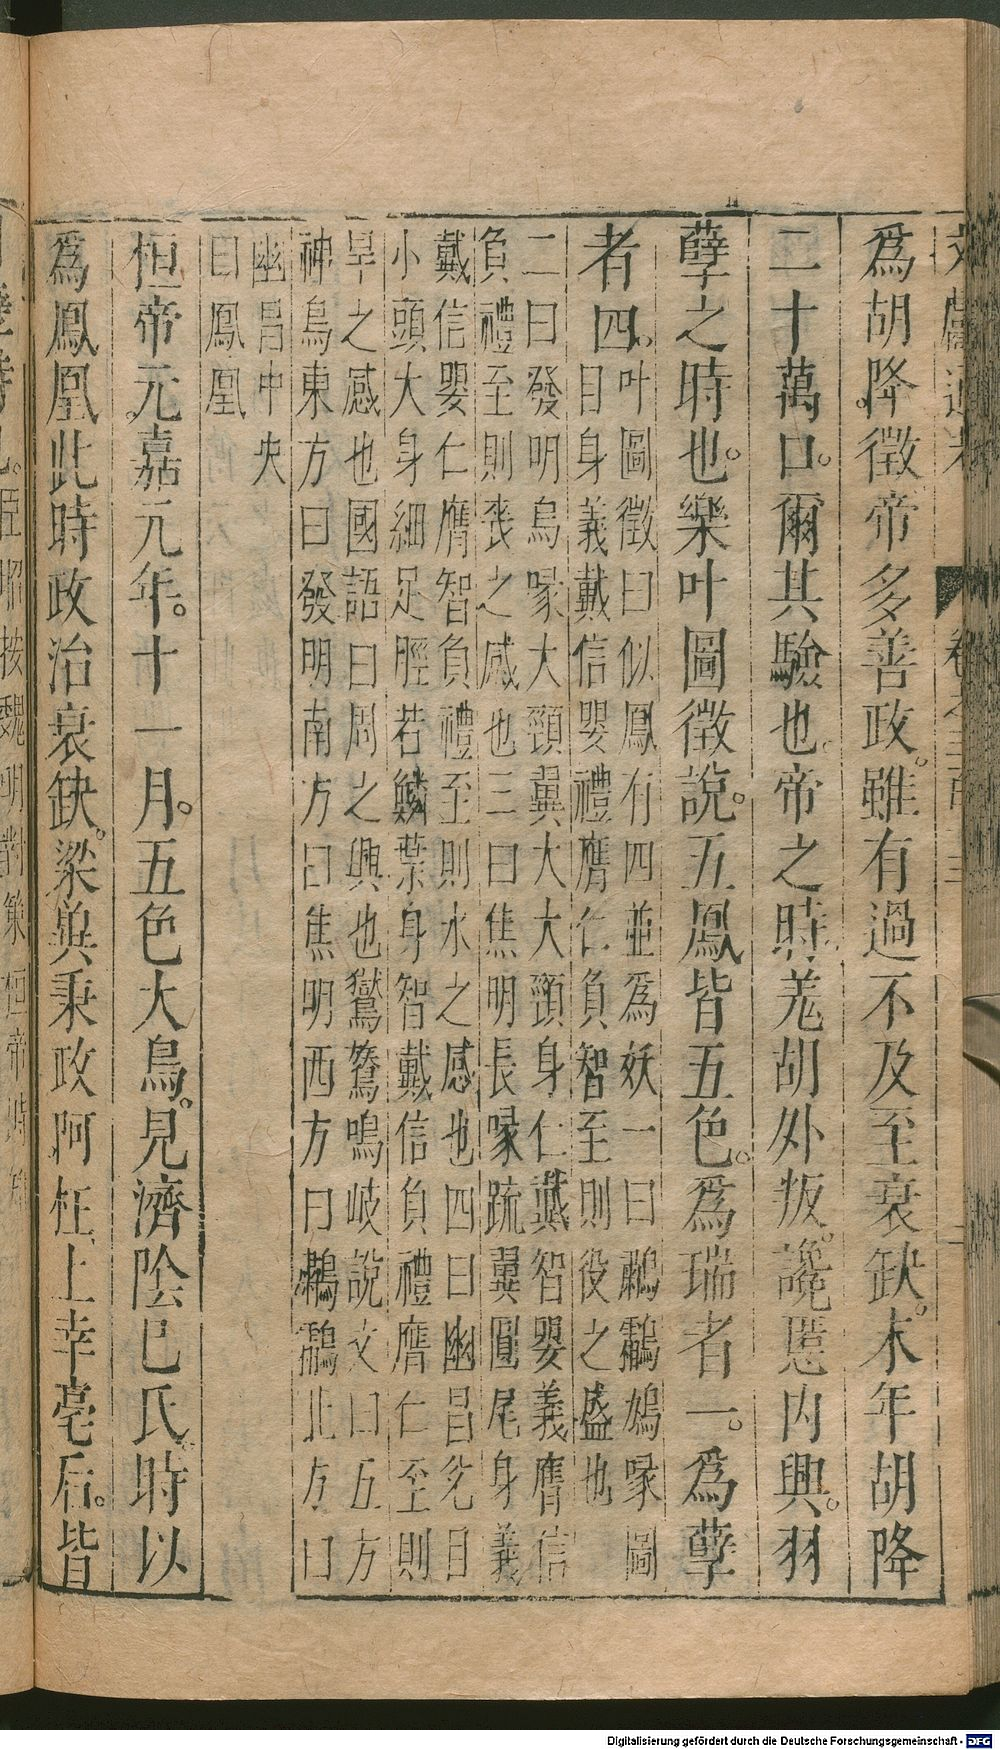 爲胡降徵帝多善政雖有過不及至衰缺末年胡降
二十萬口爾其驗也帝之時羌胡外叛讒慝内興羽
孽之時也樂叶圖徵說五鳳皆五色爲瑞者一爲孽
者四叶圖徵曰似鳳有四並爲妖一曰鷫鸘鳩喙圓
目身義戴信嬰禮膺仁負智至則役之盛也
二曰發明烏喙大頸翼大大頸身仁戴智嬰義膺信
負禮至則喪之感也三曰焦明長喙疏翼圓尾身義
戴信嬰仁膺智負禮至則水之感也四曰幽昌兊目
小頭大身細足脛若鱗葉身智戴信負禮膺仁至則
旱之感也國語曰周之興也鸑鷟鳴岐說文曰五方
神鳥東方曰發明南方曰焦明西方曰鷫鸘北方曰
幽昌中央
曰鳳凰
桓帝元嘉元年十一月五色大鳥見濟陰巳氏時以
爲鳳凰此時政治衰缺梁兾秉政阿枉上幸亳后皆
Digitalisierung gefördert durch die Deutsche Forschungsgemeinschaft - DFG